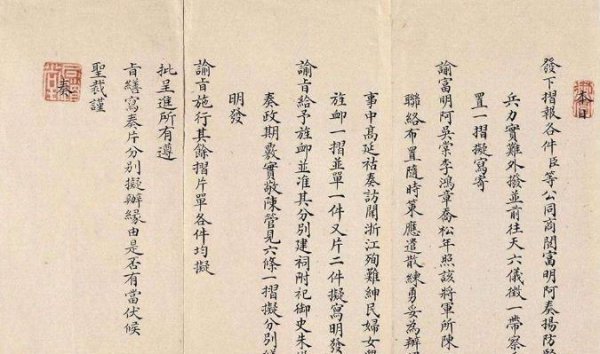 本日
發下摺報各件臣等公同商閱富明阿奏揚防
兵力實難外撥並前往天六儀徵一帶察
置一摺擬寫寄
諭富明阿吳棠李鴻章喬松年照該將軍所陳
聯絡布置隨時策應遣散練勇妥為辦
事中高延祜奏訪聞浙江殉難紳民婦女
旌卹一摺並單一件又片二件擬寫明發
諭旨給予旌卹並准其分別建祠附祀御史朱
奏政期覈實敬陳管見六條一摺擬分別
明發
諭旨施行其餘摺片單各件均擬
批呈進所有遵
旨繕寫奏片分別擬辦緣由是否有當伏候
聖裁謹
奏